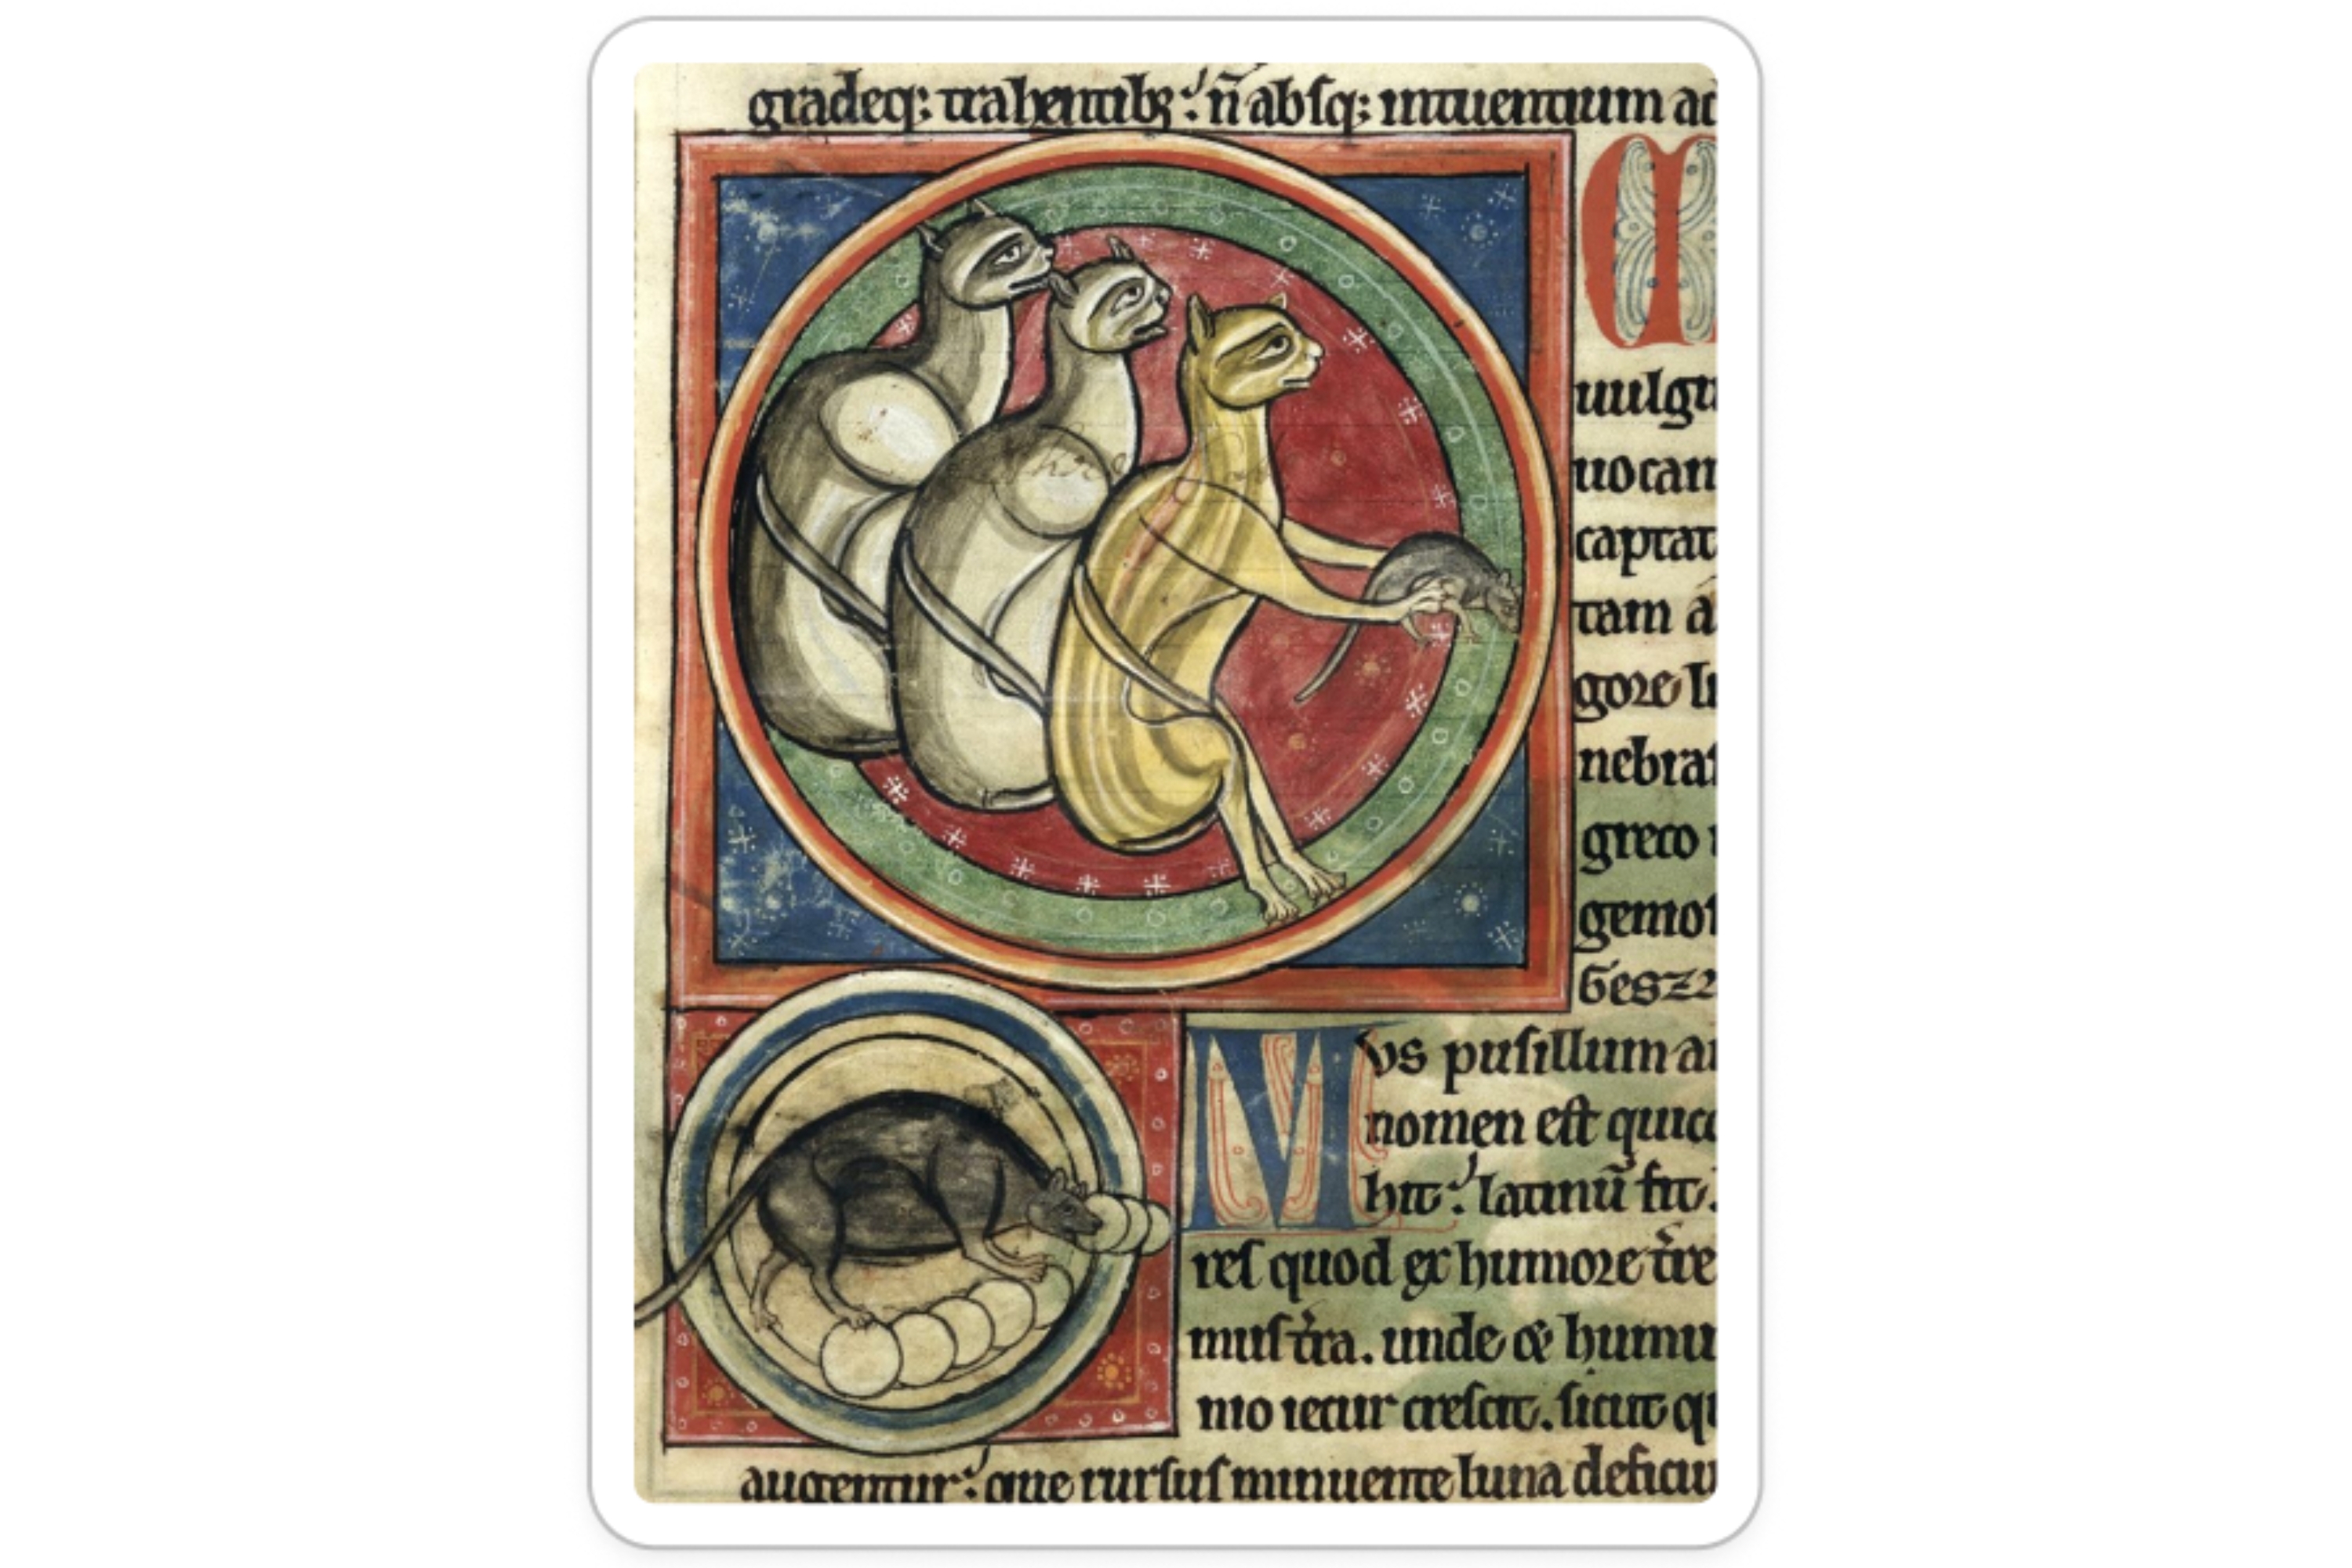 gradeq: trahentibꝫ. n̄ absq: intuentium ad
M
uulgu
uocan
captat
tam a
gore lu
nebras
greco
gemo
Mvs pusillum an
nomen est quicq
hit. latinū fit.
res quod ex humore t̄re
mus t̄ra. unde & humu
mo iecur crescit. sicut qu
augentur. que rursus minuente luna deficiu